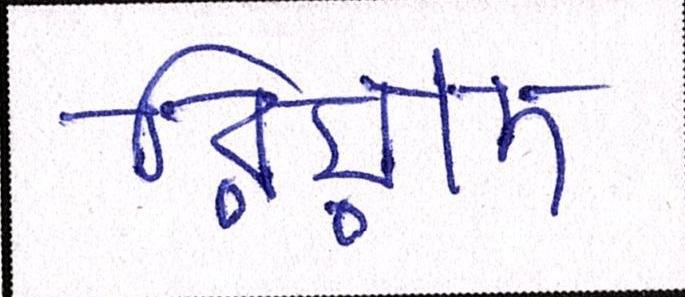 রিয়াদ